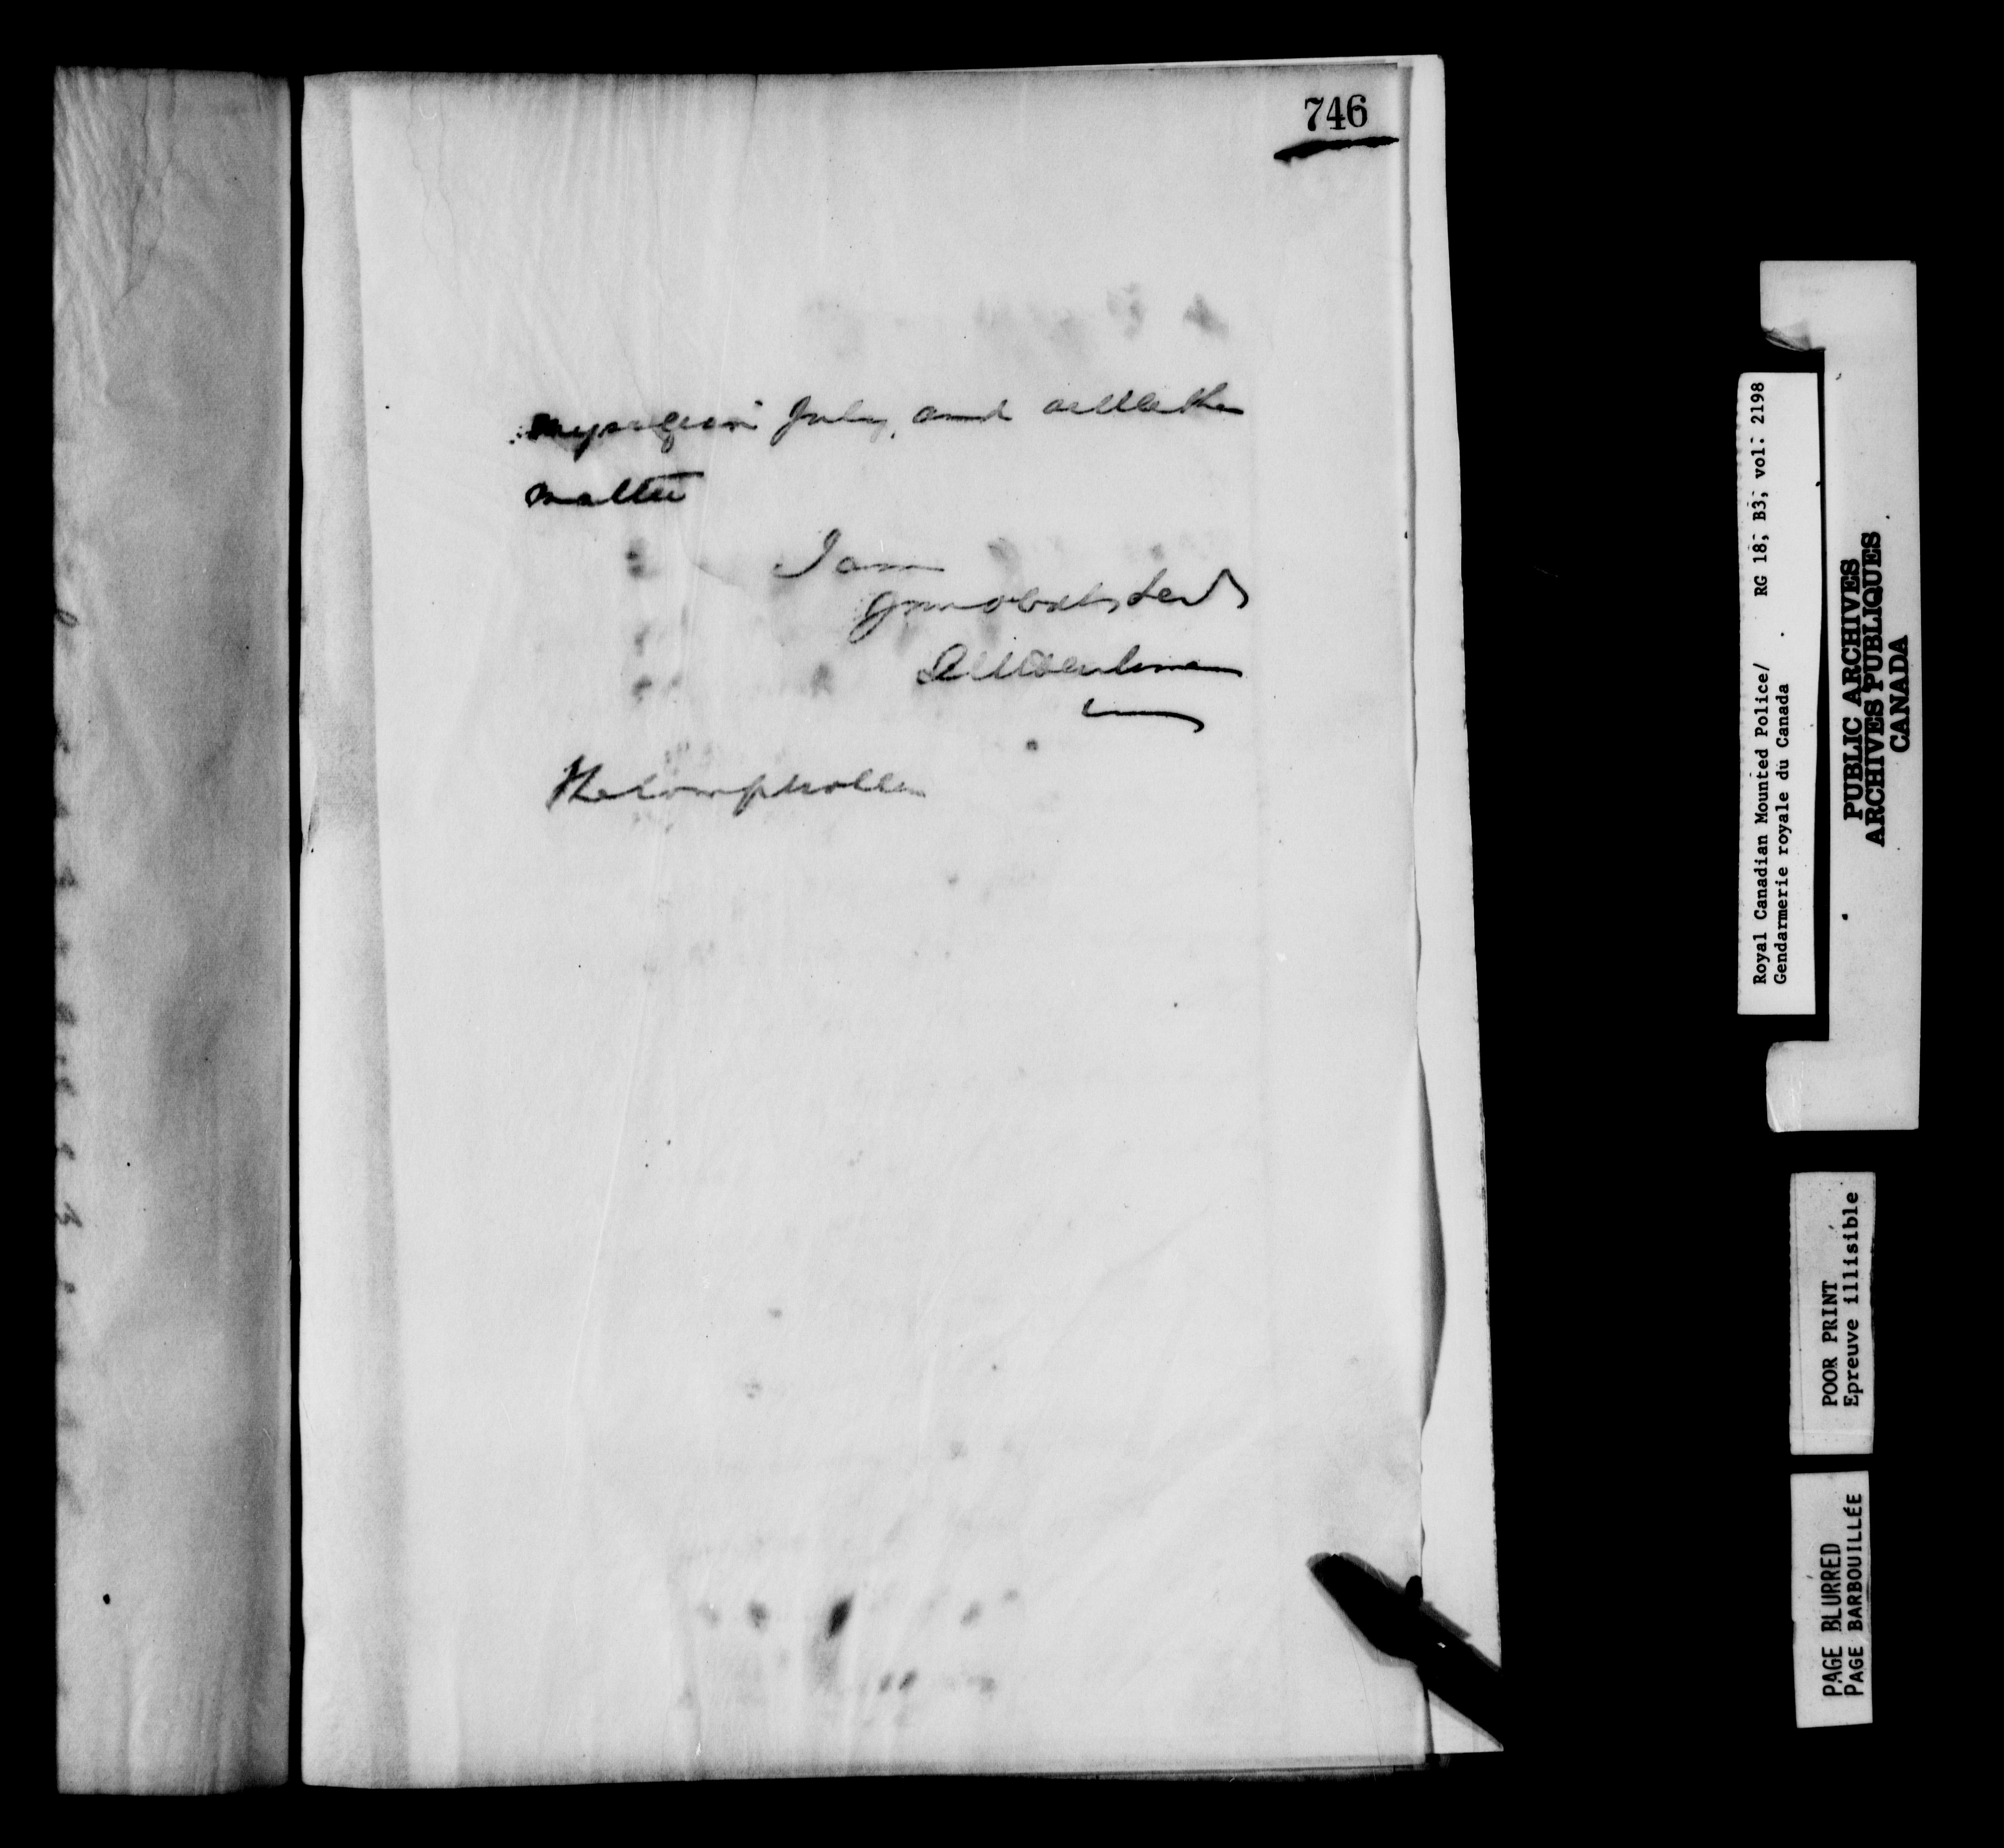 746
July, and settle the
matter
I am
Your obedt. Servt
The Comptroller
Royal Canadian Mounted Police/ RG 18; B3; vol: 2198
Gendarmerie royale du Canada
PUBLIC ARCHIVES
ARCHIVES PUBLIQUES
CANADA
POOR PRINT
Epreuve illisible
PAGE BLURRED
PAGE BARBOUILLÉE